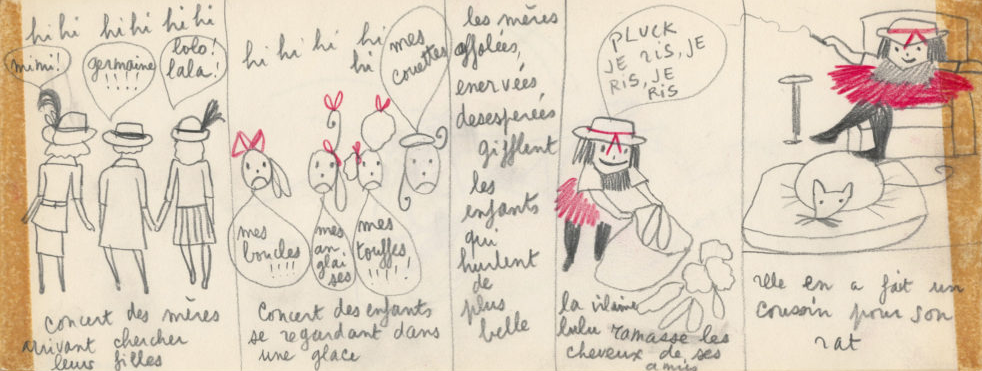 hi hi hi hi hi hi
mimi!
germaine
!!!!
lolo!
lala!
concert des mères
arrivant chercher
leurs filles
hi hi hi hi
hi
mes
couettes
mes
boucles
!!!!
mes
an
glai
ses
mes
touffes
!!!!!
Concert des enfants
se regardant dans
une glace
les mères
affolées,
enervées,
desesperées
gifflent
les
enfants
qui
hurlent
de
plus
belle
PLUCK
JE RIS, JE
RIS, JE
RIS
la vilaine
lulu ramasse les
cheveux de ses
amies
elle en a fait un
coussin pour son
rat